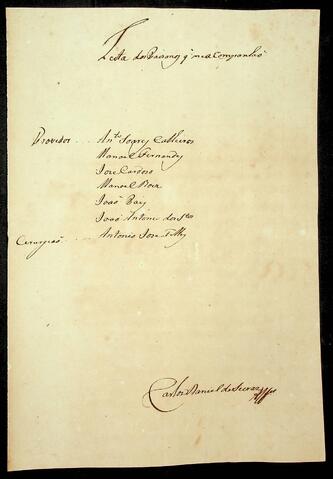 Lista dos Paizanos q̃ me acompanhão
Provedor Anto. Soares Calheiros
Manoel Fernandes
Jose Cardoso
Manoel
João
João Antonio dos Stos
Cerurgião Antonio Jose
Carlos Daniel de